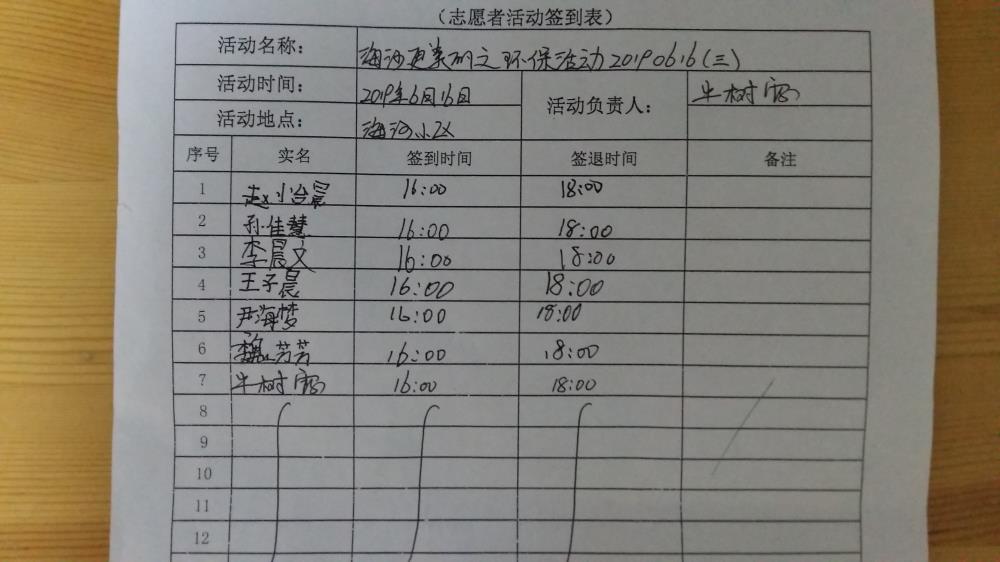 (志愿者活动签到表)
活动名称: 环保活动20190616(三)
活动时间: 2019年6月16日 活动负责人: 牛树
活动地点: 海河小区
序号 实名 签到时间 签退时间 备注
1 赵小 16:00 18:00
2 孙佳慧 16:00 18:00
3 李晨文 16:00 18:00
4 王子晨 16:00 18:00
5 尹海梦 16:00 18:00
6 魏芳芳 16:00 18:00
7 牛树 16:00 18:00
8
9
10
11
12